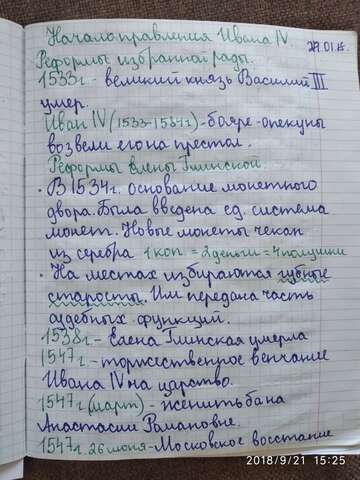 Начало правления Ивана IV.
29.01.18.
Реформы избранной рады.
1533г - великий князь Василий III
умер.
Иван IV (1533-1584г) - бояре-опекуны
возвели его на престол.
Реформы Елены Глинской
· В 1534г. основание монетного
двора. Была введена ед. система
монет. Новые монеты чекан
из серебра 1 коп = 2 деньги = 4 полушки
· На местах избираются губные
старосты. Им передана часть
судебных функций.
1538г - Елена Глинская умерла
1547г. - торжественное венчание
Ивана IV на царство.
1547г (март) - женитьба на
Анастасии Романовне.
1547г. 26 июня - Московское восстание
2018/9/21 15:25